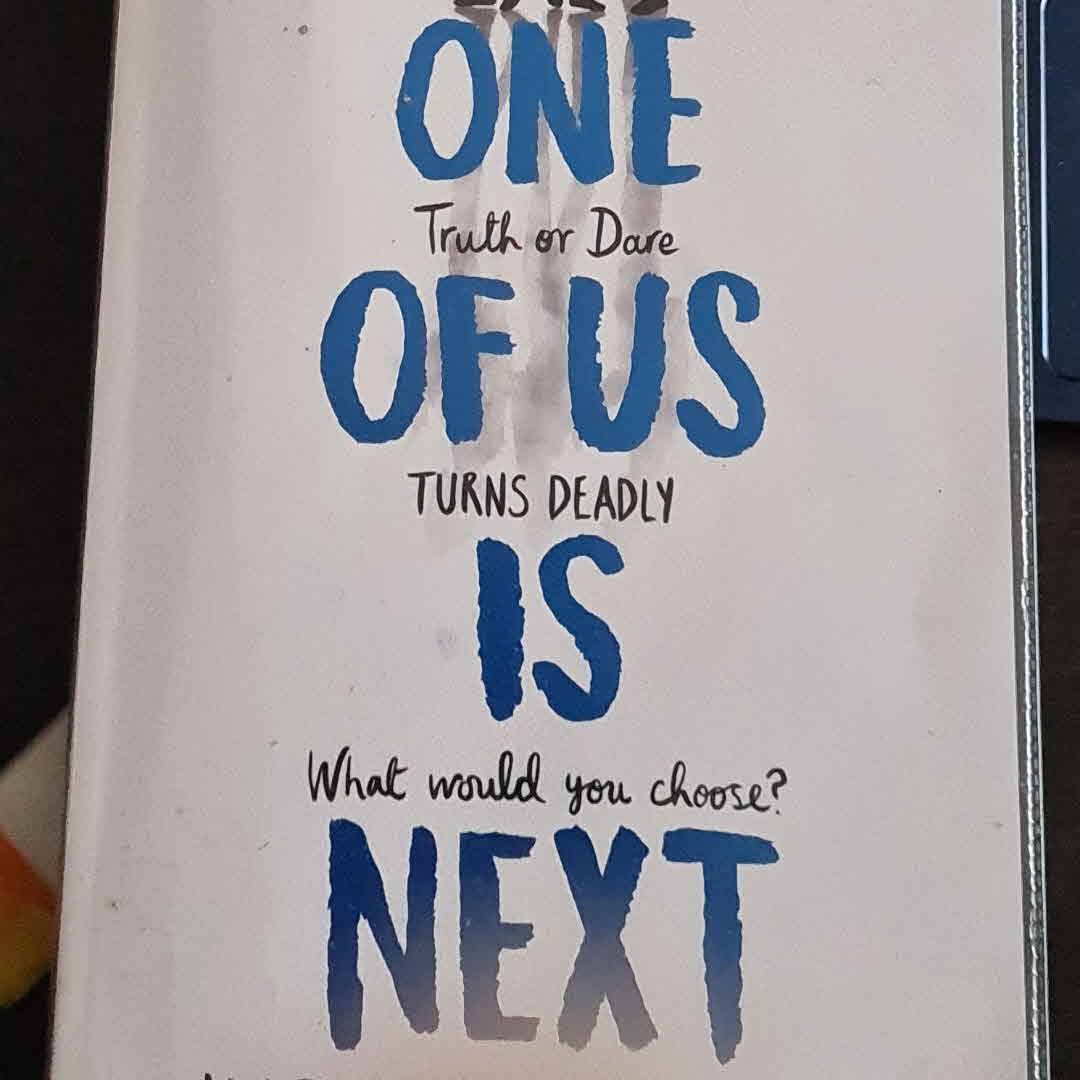 ONE
Truth or Dare
OF US
TURNS DEADLY
IS
What would you choose?
NEXT